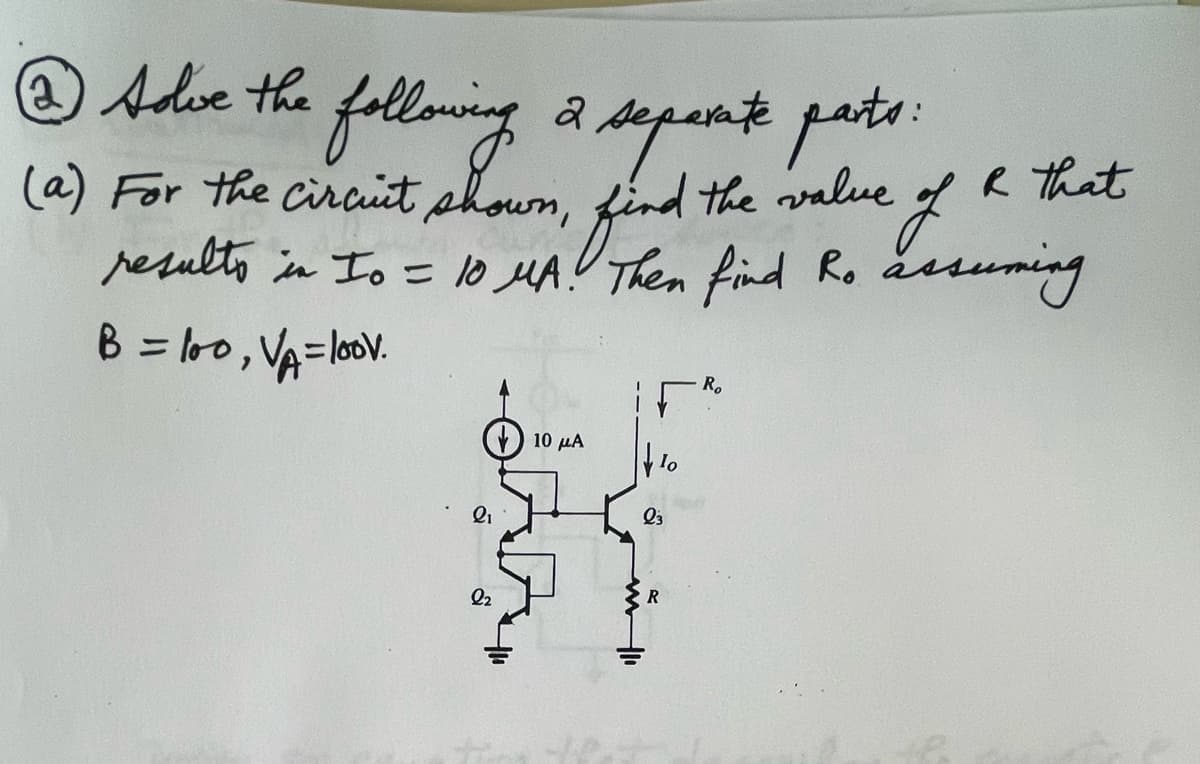 ② Solve the following 2 separate parts:
(a) For the circuit shown, find the value of R that
results in Io = 10 μA! Then find Ro assuming
B = 100, VA = 100V.
Ro
10 μA
Io
Q1
Q3
Q2
R